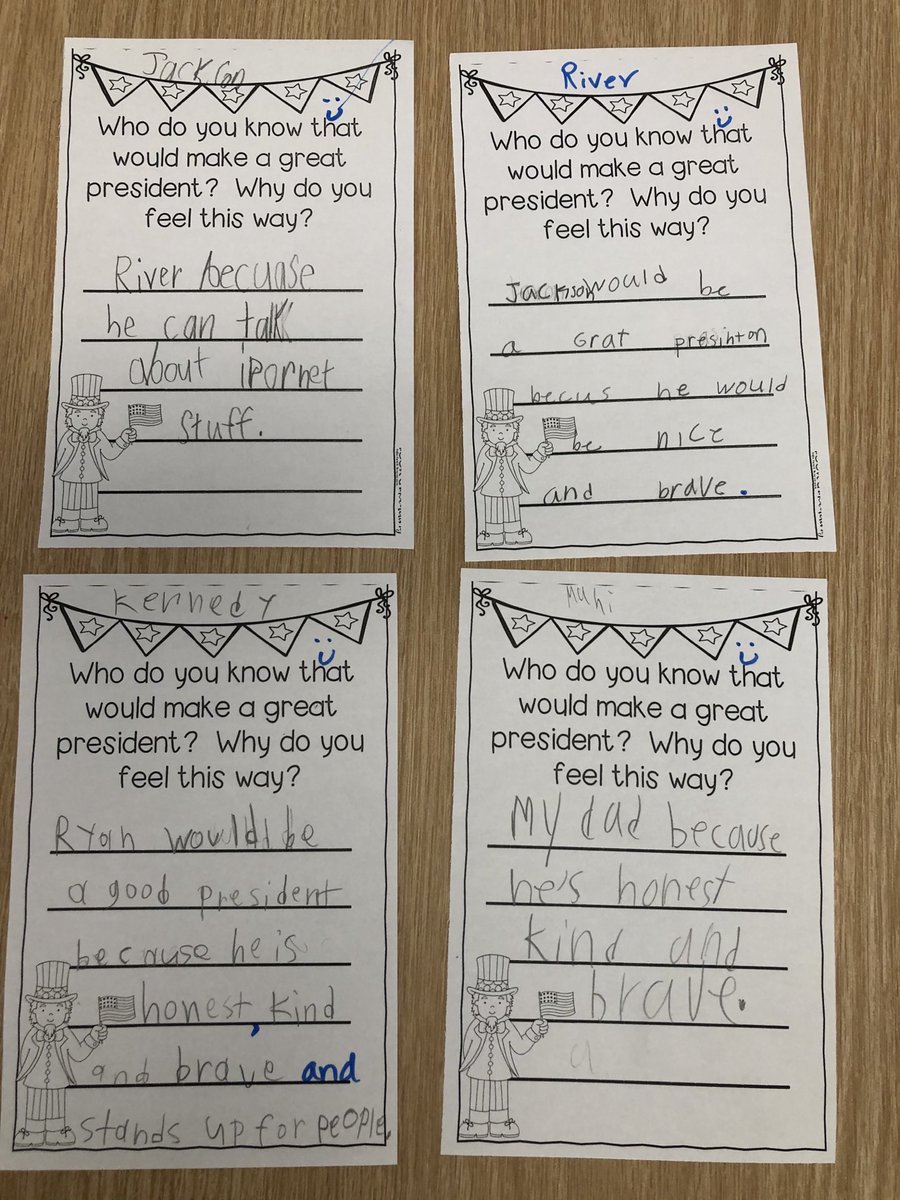 Jackson
Who do you know that
would make a great
president? Why do you
feel this way?
River becuase
he can talk
about iPornet
stuff.
River
Who do you know that
would make a great
president? Why do you
feel this way?
Jackson would be
a grat presihton
becus he would
be nice
and brave.
Kennedy
Who do you know that
would make a great
president? Why do you
feel this way?
Ryan would be
a good president
because he is
honest, kind
and brave and
stands up for people.
Mahi
Who do you know that
would make a great
president? Why do you
feel this way?
My dad because
he's honest
kind and
brave.